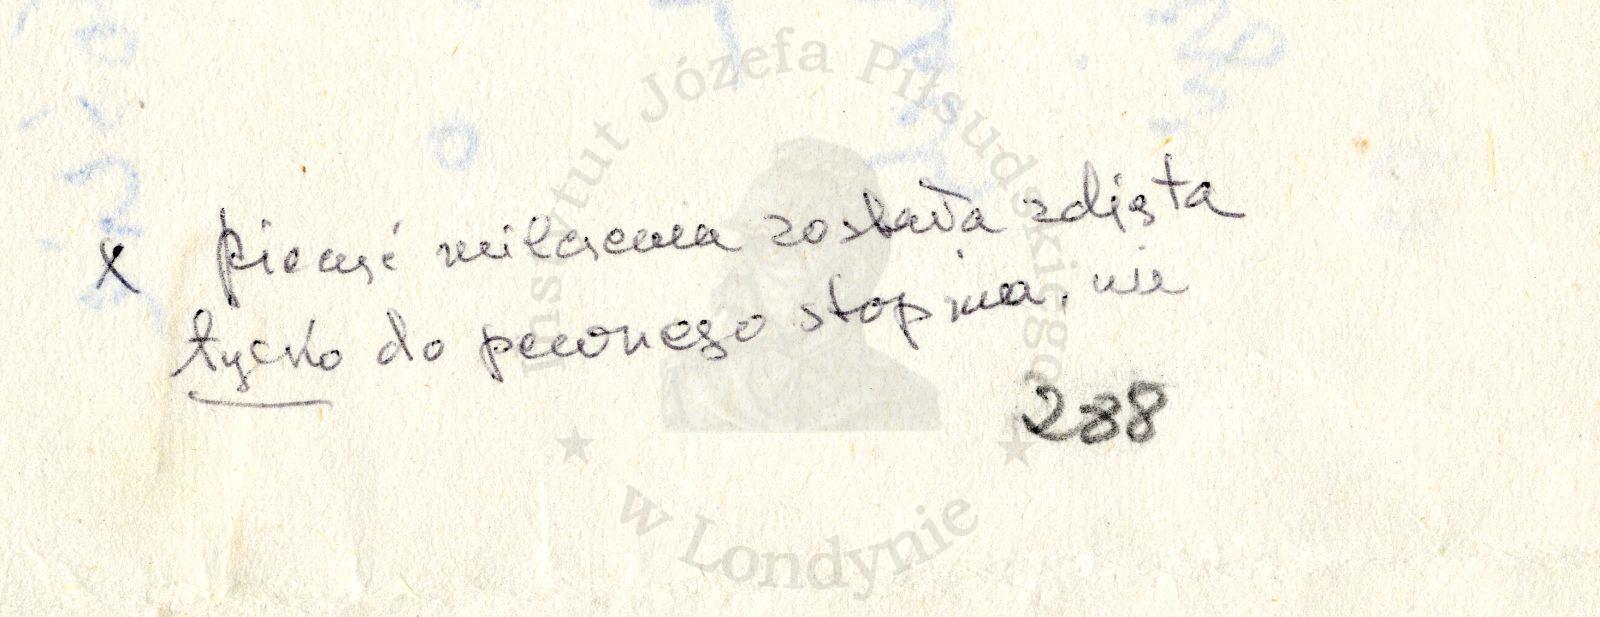 Instytut Józefa Piłsudskiego
x pieczęć milczenia została zdjęta
tylko do pewnego stopnia, nie
288
w Londynie